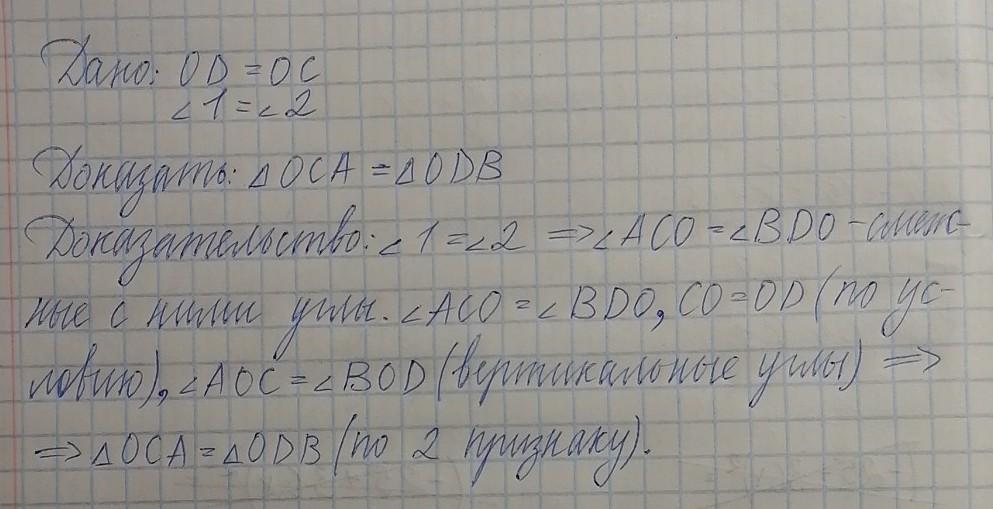 Дано: OD = OC
∠1 = ∠2
Доказать: △OCA = △ODB
Доказательство: ∠1 = ∠2 => ∠ACO = ∠BDO - смеж-
ные с ними углы. ∠ACO = ∠BDO, CO = OD (по ус-
ловию), ∠AOC = ∠BOD (вертикальные углы) =>
=> △OCA = △ODB (по 2 признаку).